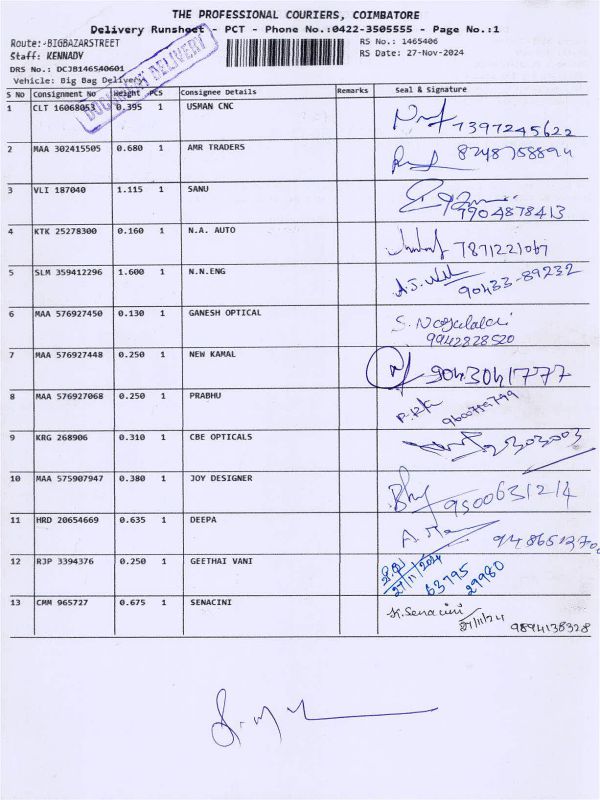 THE PROFESSIONAL COURIERS, COIMBATORE
Delivery Runsheet - PCT - Phone No.:0422-3505555 - Page No.:1
Route:-BIGBAZARSTREET
RS No.: 1465406
Staff: KENNADY
RS Date: 27-Nov-2024
DRS No.: DCJB146540601
Vehicle: Big Bag Delivery
DOCUMENT DELIVERY
S No Consignment No Weight PCS Consignee Details Remarks Seal & Signature
1 CLT 16068053 0.395 1 USMAN CNC 7397245622
2 MAA 302415505 0.680 1 AMR TRADERS 8248758894
3 VLI 187040 1.115 1 SANU 9904878413
4 KTK 25278300 0.160 1 N.A. AUTO 7871221067
5 SLM 359412296 1.600 1 N.N.ENG 90433-89232
6 MAA 576927450 0.130 1 GANESH OPTICAL
9942828520
7 MAA 576927448 0.250 1 NEW KAMAL 9043041777
8 MAA 576927068 0.250 1 PRABHU
9 KRG 268906 0.310 1 CBE OPTICALS
10 MAA 575907947 0.380 1 JOY DESIGNER 9500631214
11 HRD 20654669 0.635 1 DEEPA
12 RJP 3394376 0.250 1 GEETHAI VANI 27/11/2024 63795 29980
13 CMM 965727 0.675 1 SENACINI K.Senacini
27/11/24 9894138328